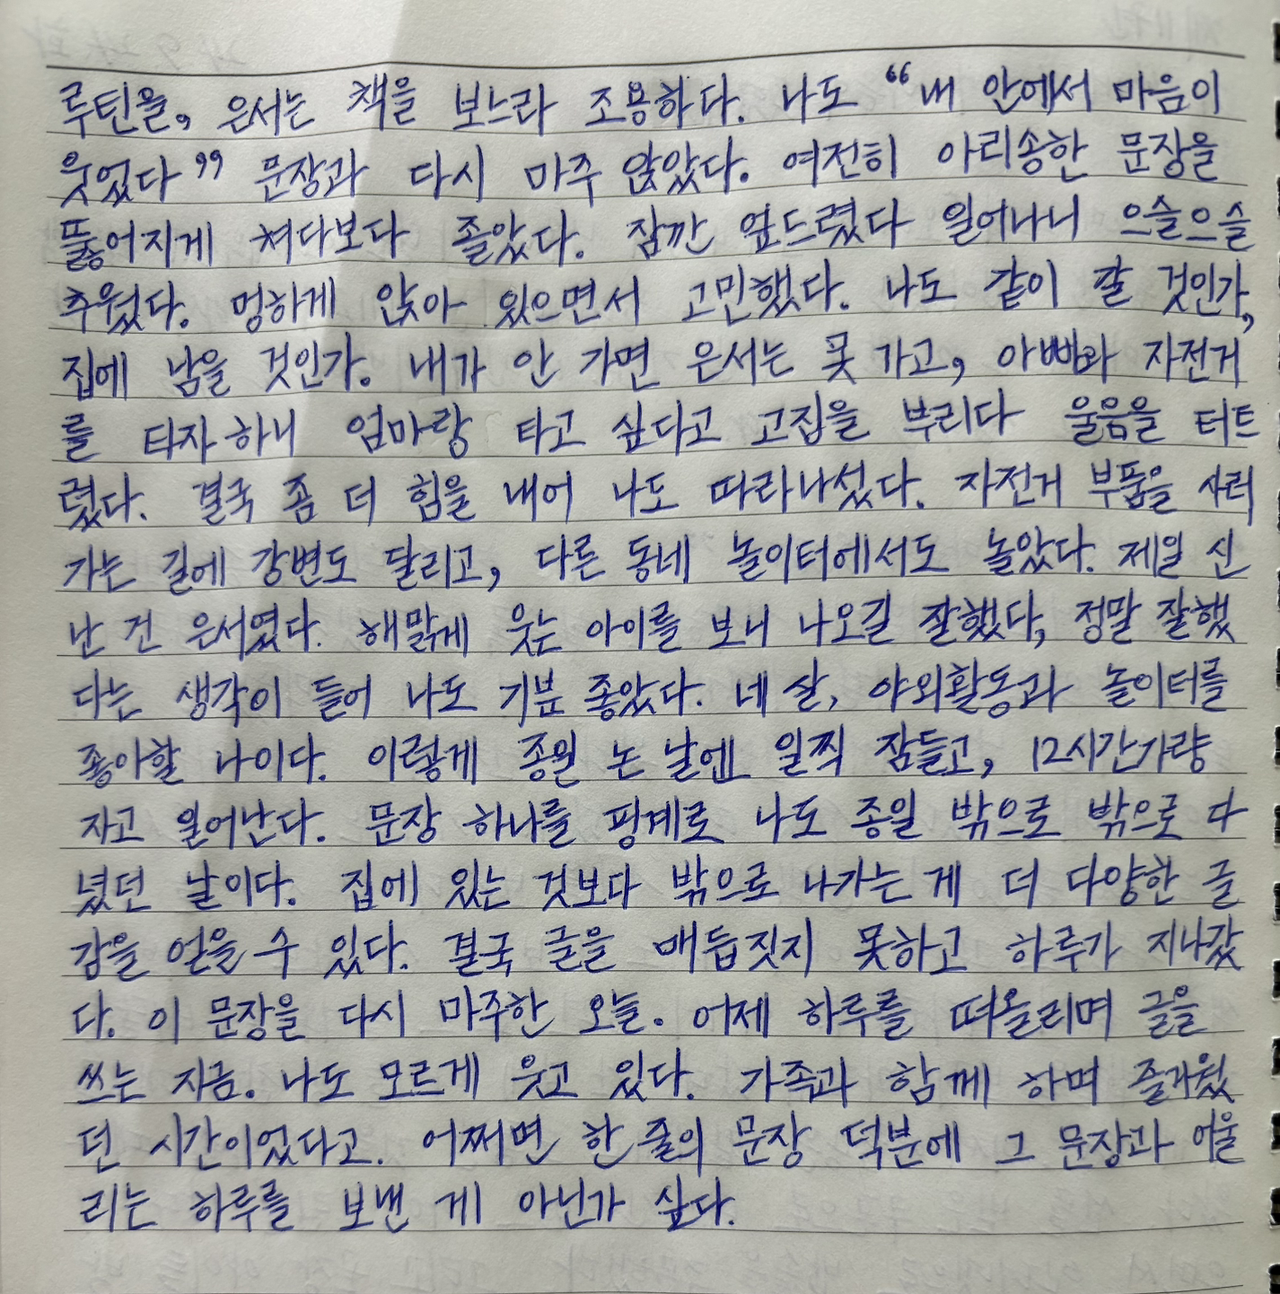 루틴을, 은서는 책을 보느라 조용하다. 나도 “내 안에서 마음이
웃었다” 문장과 다시 마주 앉았다. 여전히 아리송한 문장을
뚫어지게 쳐다보다 졸았다. 잠깐 엎드렸다 일어나니 으슬으슬
추웠다. 멍하게 앉아 있으면서 고민했다. 나도 같이 갈 것인가,
집에 남을 것인가. 내가 안 가면 은서는 못 가고, 아빠와 자전거
를 타자하니 엄마랑 타고 싶다고 고집을 부리다 울음을 터트
렸다. 결국 좀 더 힘을 내어 나도 따라나섰다. 자전거 부품을 사러
가는 길에 강변도 달리고, 다른 동네 놀이터에서도 놀았다. 제일 신
난 건 은서였다. 해맑게 웃는 아이를 보니 나오길 잘했다, 정말 잘했
다는 생각이 들어 나도 기분 좋았다. 네 살, 야외활동과 놀이터를
좋아할 나이다. 이렇게 종일 논 날엔 일찍 잠들고, 12시간가량
자고 일어난다. 문장 하나를 핑계로 나도 종일 밖으로 밖으로 다
녔던 날이다. 집에 있는 것보다 밖으로 나가는 게 더 다양한 글
감을 얻을 수 있다. 결국 글을 매듭짓지 못하고 하루가 지나갔
다. 이 문장을 다시 마주한 오늘. 어제 하루를 떠올리며 글을
쓰는 지금. 나도 모르게 웃고 있다. 가족과 함께 하며 즐거웠
던 시간이었다고. 어쩌면 한 줄의 문장 덕분에 그 문장과 어울
리는 하루를 보낸 게 아닌가 싶다.